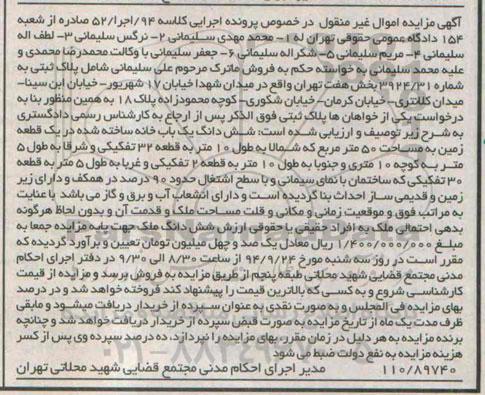 آگهی مزایده اموال غیر منقول در خصوص پرونده اجرایی کلاسه ۹۴/اجرا/۵۲ صادره از شعبه
۱۵۴ دادگاه عمومی حقوقی تهران له ۱- محمد مهدی سلیمانی ۲- نرگس سلیمانی ۳- لطف اله
سلیمانی ۴- مریم سلیمانی ۵- شکر اله سلیمانی ۶- جعفر سلیمانی با وکالت محمدرضا محمدی و
علیه محمد سلیمانی به خواسته حکم به فروش ماترک مرحوم علی سلیمانی شامل پلاک ثبتی به
شماره ۳۹۲۴/۳۱ بخش هفت تهران واقع در میدان شهدا خیابان ۱۷ شهریور- خیابان ابن سینا-
میدان کلانتری- خیابان کرمان- خیابان شکوری- کوچه محمودزاده پلاک ۱۸ به همین منظور بنا به
درخواست یکی از خواهان ها پلاک ثبتی فوق الذکر پس از ارجاع به کارشناس رسمی دادگستری
به شرح زیر توصیف و ارزیابی شده است: شش دانگ یک باب خانه ساخته شده در یک قطعه
زمین به مساحت ۵۰ متر مربع که شمالا به طول ۱۰ متر به قطعه ۳۲ تفکیکی و شرقا به طول ۵
متر به کوچه ۱۰ متری و جنوبا به طول ۱۰ متر به قطعه ۲ تفکیکی و غربا به طول ۵ متر به قطعه
۳۰ تفکیکی که ساختمان با نمای سیمانی و با سطح اشتغال حدود ۹۰ درصد در همکف و دارای زیر
زمین و قدیمی ساز احداث بنا گردیده است و دارای انشعاب آب و برق و گاز می باشد با عنایت
به مراتب فوق و موقعیت زمانی و مکانی و قلت مساحت ملک و قدمت آن و بدون لحاظ هرگونه
بدهی احتمالی ملک به افراد حقیقی یا حقوقی ارزش شش دانگ ملک جهت پایه مزایده جمعا به
مبلغ ۱/۴۰۰/۰۰۰/۰۰۰ ریال معادل یک صد و چهل میلیون تومان تعیین و برآورد گردیده که
مقرر است در روز سه شنبه مورخ ۹۴/۹/۲۴ از ساعت ۸/۳۰ الی ۹/۳۰ در دفتر اجرای احکام
مدنی مجتمع قضایی شهید محلاتی طبقه پنجم از طریق مزایده به فروش برسد و مزایده از قیمت
کارشناسی شروع و به کسی که بالاترین قیمت را پیشنهاد کند فروخته خواهد شد و ده درصد
بهای مزایده فی المجلس و به صورت نقدی به عنوان سپرده از خریدار دریافت میشود و مابقی
ظرف مدت یک ماه از تاریخ مزایده به صورت قبض سپرده از خریدار دریافت خواهد شد و چنانچه
برنده مزایده به هر دلیل در زمان مقرر، بهای مزایده را نپردازد، ده درصد سپرده وی پس از کسر
هزینه مزایده به نفع دولت ضبط می شود
۱۱۰/۸۹۷۴۰ مدیر اجرای احکام مدنی مجتمع قضایی شهید محلاتی تهران